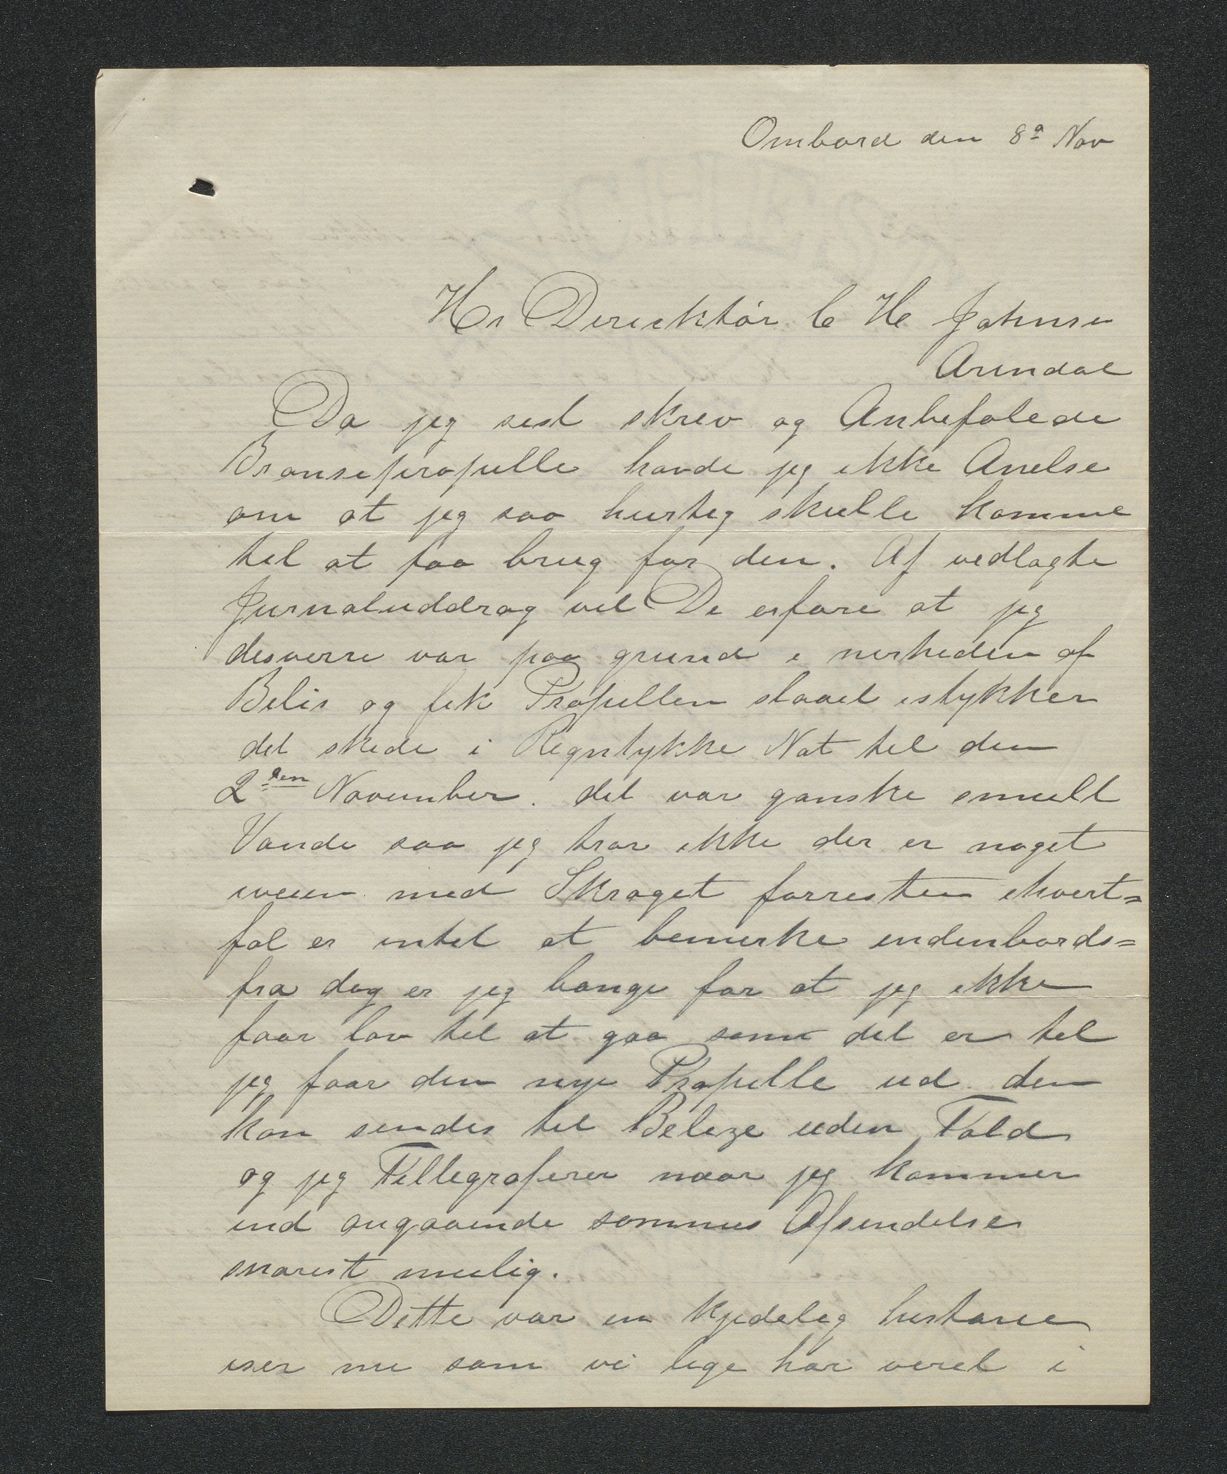 Ombord den 8ª Nov
Hr Direcktør C He Johnsn
Arendal
Da jeg sist skrev og Anbefalede
Bronsepropelle havde jeg ikke Anelse
om at jeg saa hurtig skulle komme
til at faa brug for den. Af vedlagte
Jurnaluddrag vil De erfare at jeg
desverre var paa grund i nerheden af
Belis og fik Propellen slaaet istykker
det skede i Regntykke Nat til den
2den November. det var ganske smult
Vande saa jeg tror ikke der er noget
iveien med Skroget forresten ihvert=
fal er intet at bemerke indenbords=
fra dog er jeg bange for at jeg ikke
faar lov til at gaa som det er til
jeg faar den nye Propelle ud. den
kan sendes til Belize uden Told
og jeg Tellegraferer naar jeg kommer
ind angaaende sammes Afsendelse
snarest mulig.
Dette var en kjedelig historie
iser nu som vi lige har veret i